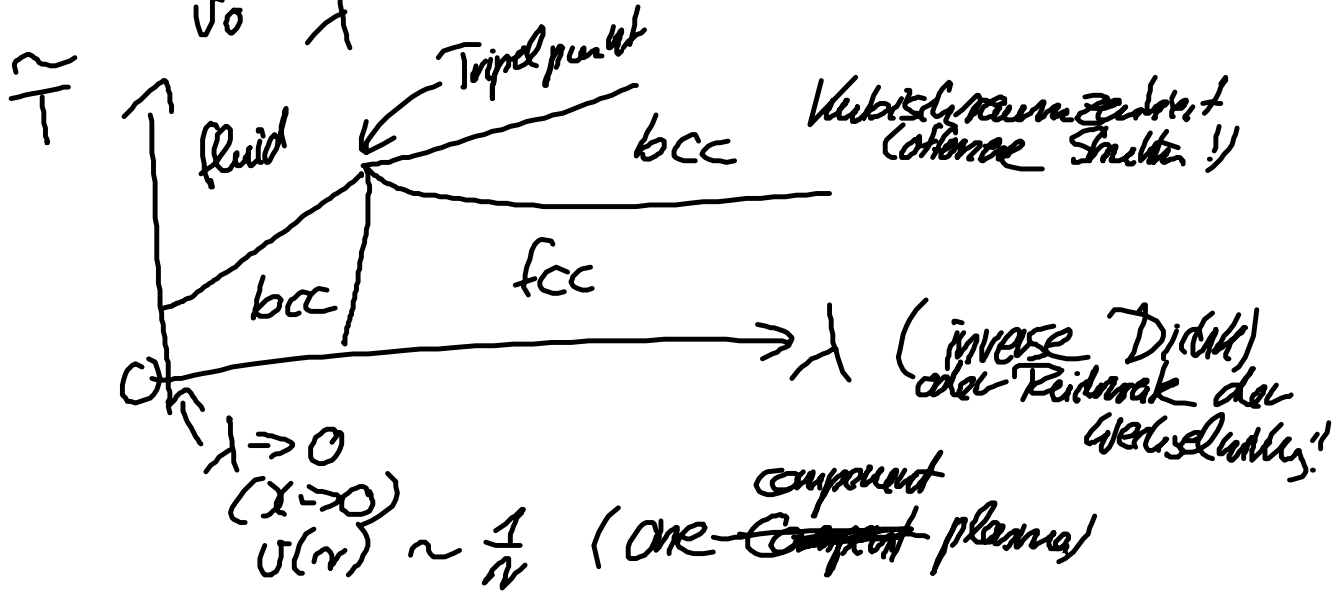 v₀ λ
T̃
Tripelpunkt
fluid
bcc
Kubischraumzentriert
(offene Struktur!)
bcc
fcc
0
λ (inverse Dicke)
oder Reichweite der
Wechselwirkung!!
λ → 0
(x → 0)
v(r) ~ 1/r (one component plasma)